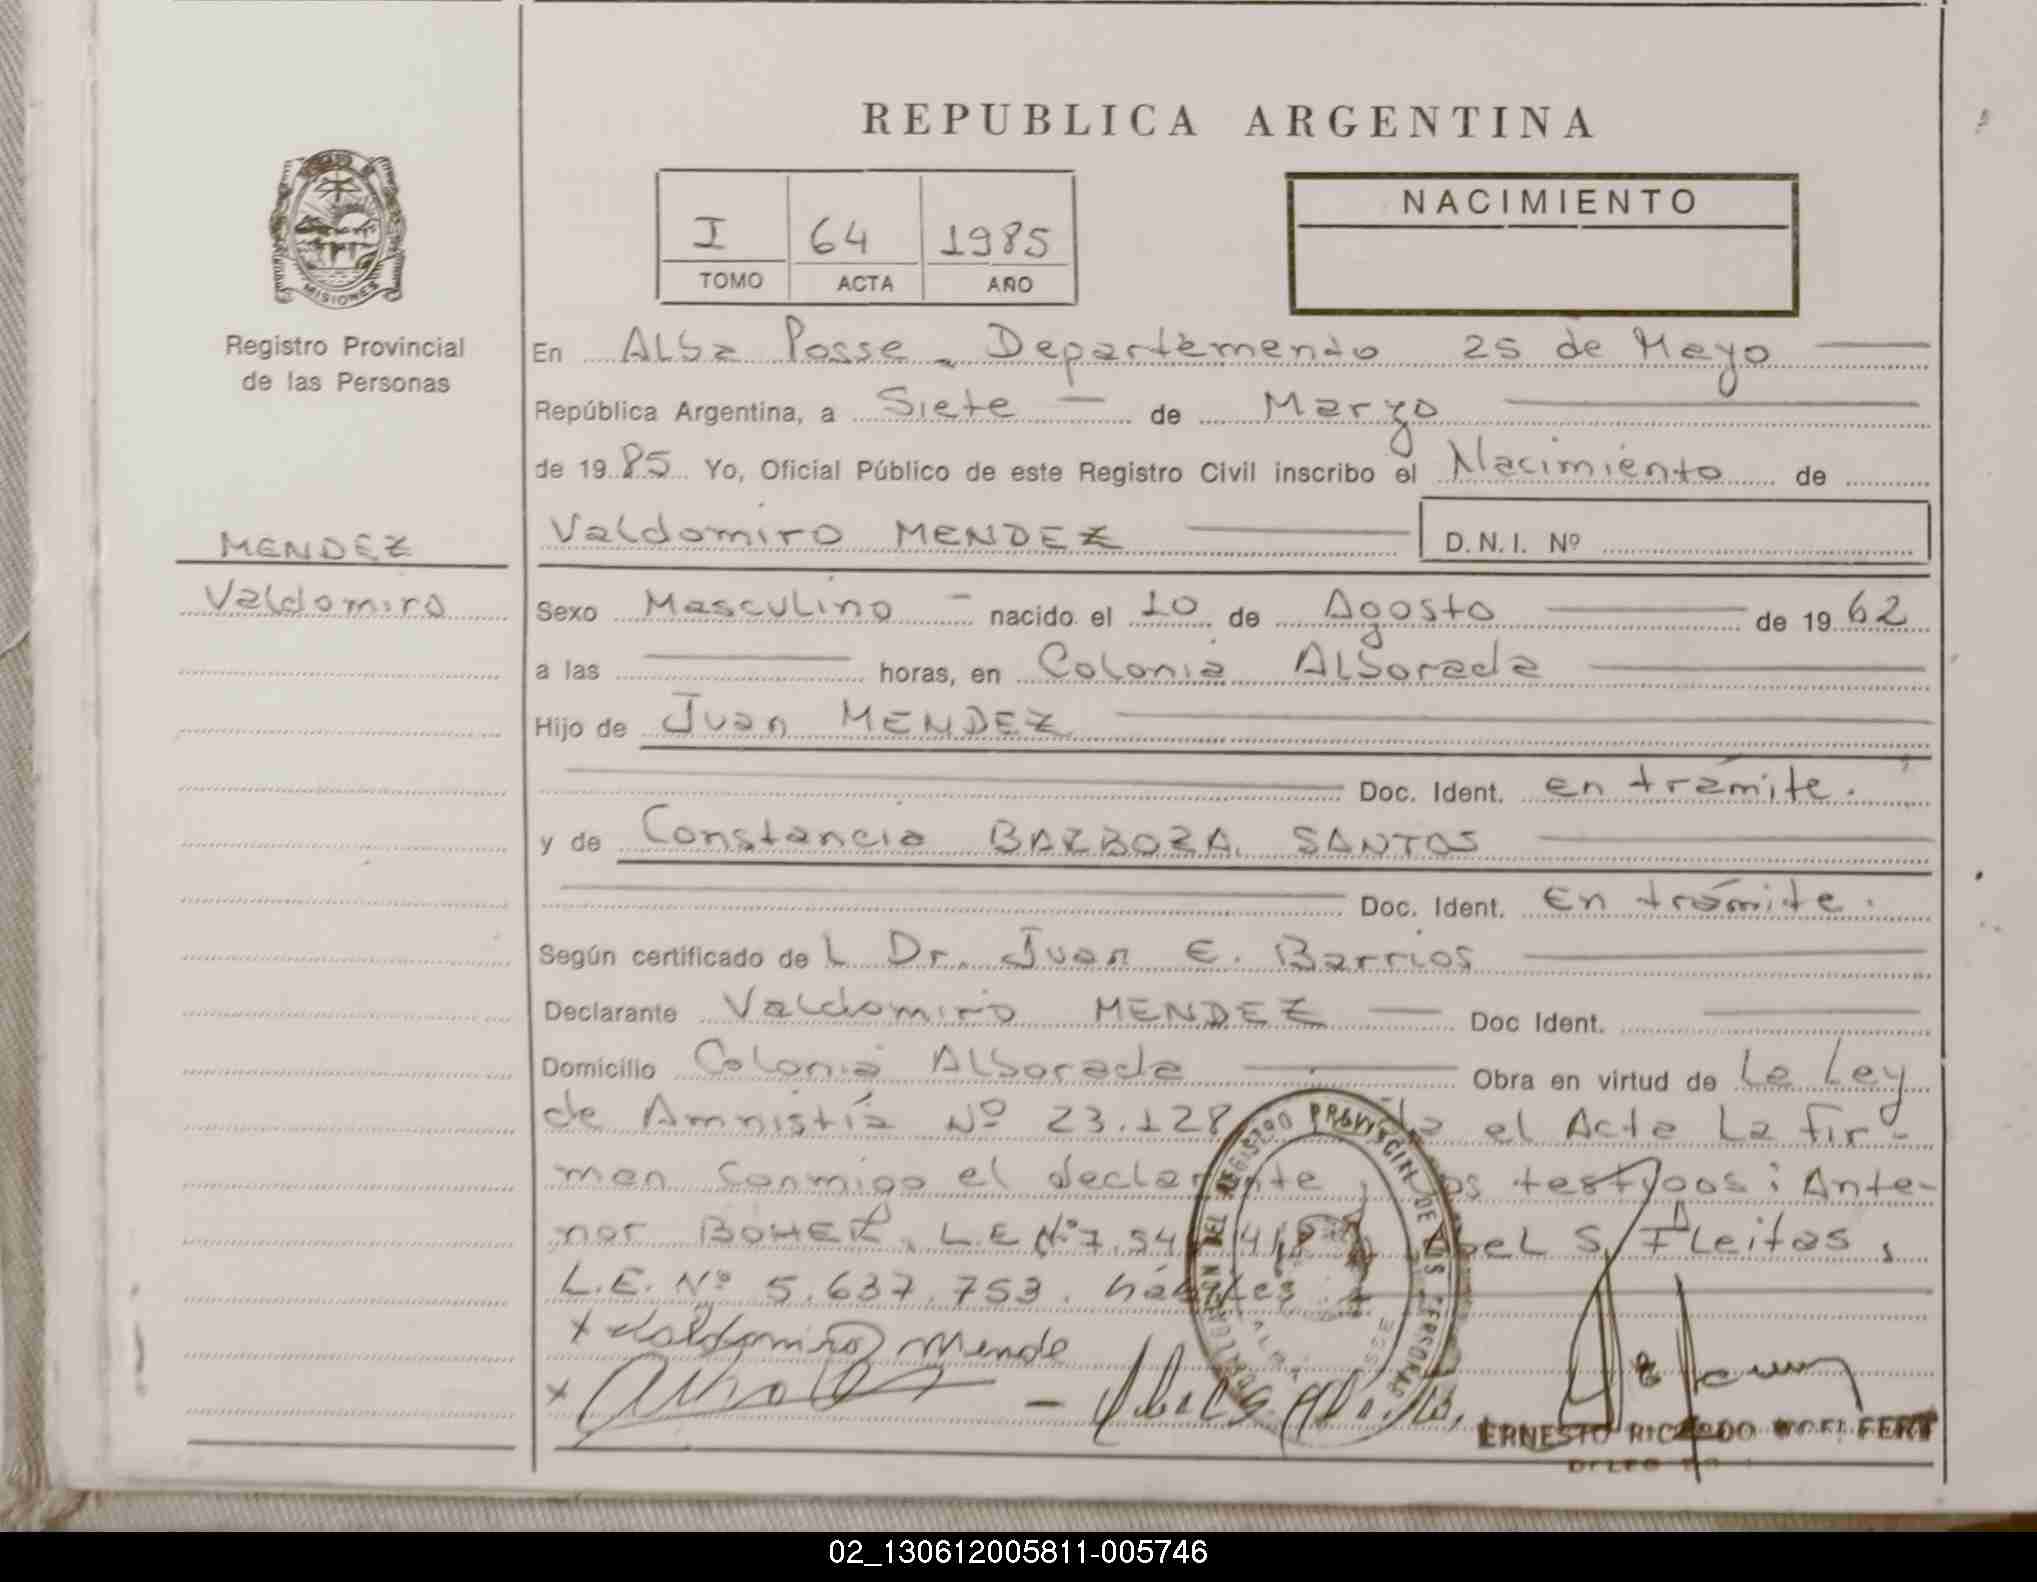 REPUBLICA ARGENTINA
MISIONES
Registro Provincial
de las Personas
I 64 1985
TOMO ACTA AÑO
NACIMIENTO
En Alba Posse - Departamento 25 de Mayo
República Argentina, a Siete de Marzo
de 1985 Yo, Oficial Público de este Registro Civil inscribo el Nacimiento de
Valdomiro MENDEZ D.N.I. Nº
MENDEZ
Valdomiro
Sexo Masculino - nacido el 10 de Agosto de 1962
a las horas, en Colonia Alborada
Hijo de Juan MENDEZ
Doc. Ident. en trámite.
y de Constancia BARBOZA SANTOS
Doc. Ident. En trámite.
Según certificado de L Dr. Juan E. Barrios
Declarante Valdomiro MENDEZ Doc Ident.
Domicilio Colonia Alborada Obra en virtud de La Ley
de Amnistía Nº 23.128 el Acta La fir-
man conmigo el declarante, los testigos: Ante-
nor BOHER, L.E Nº 7. Abel S. Fleitas,
L.E. Nº 5.637.753. hábiles
x Valdomiro Mende
x
REGISTRO PROVINCIAL DE LAS PERSONAS
ERNESTO RICARDO WOELFERT
02_130612005811-005746